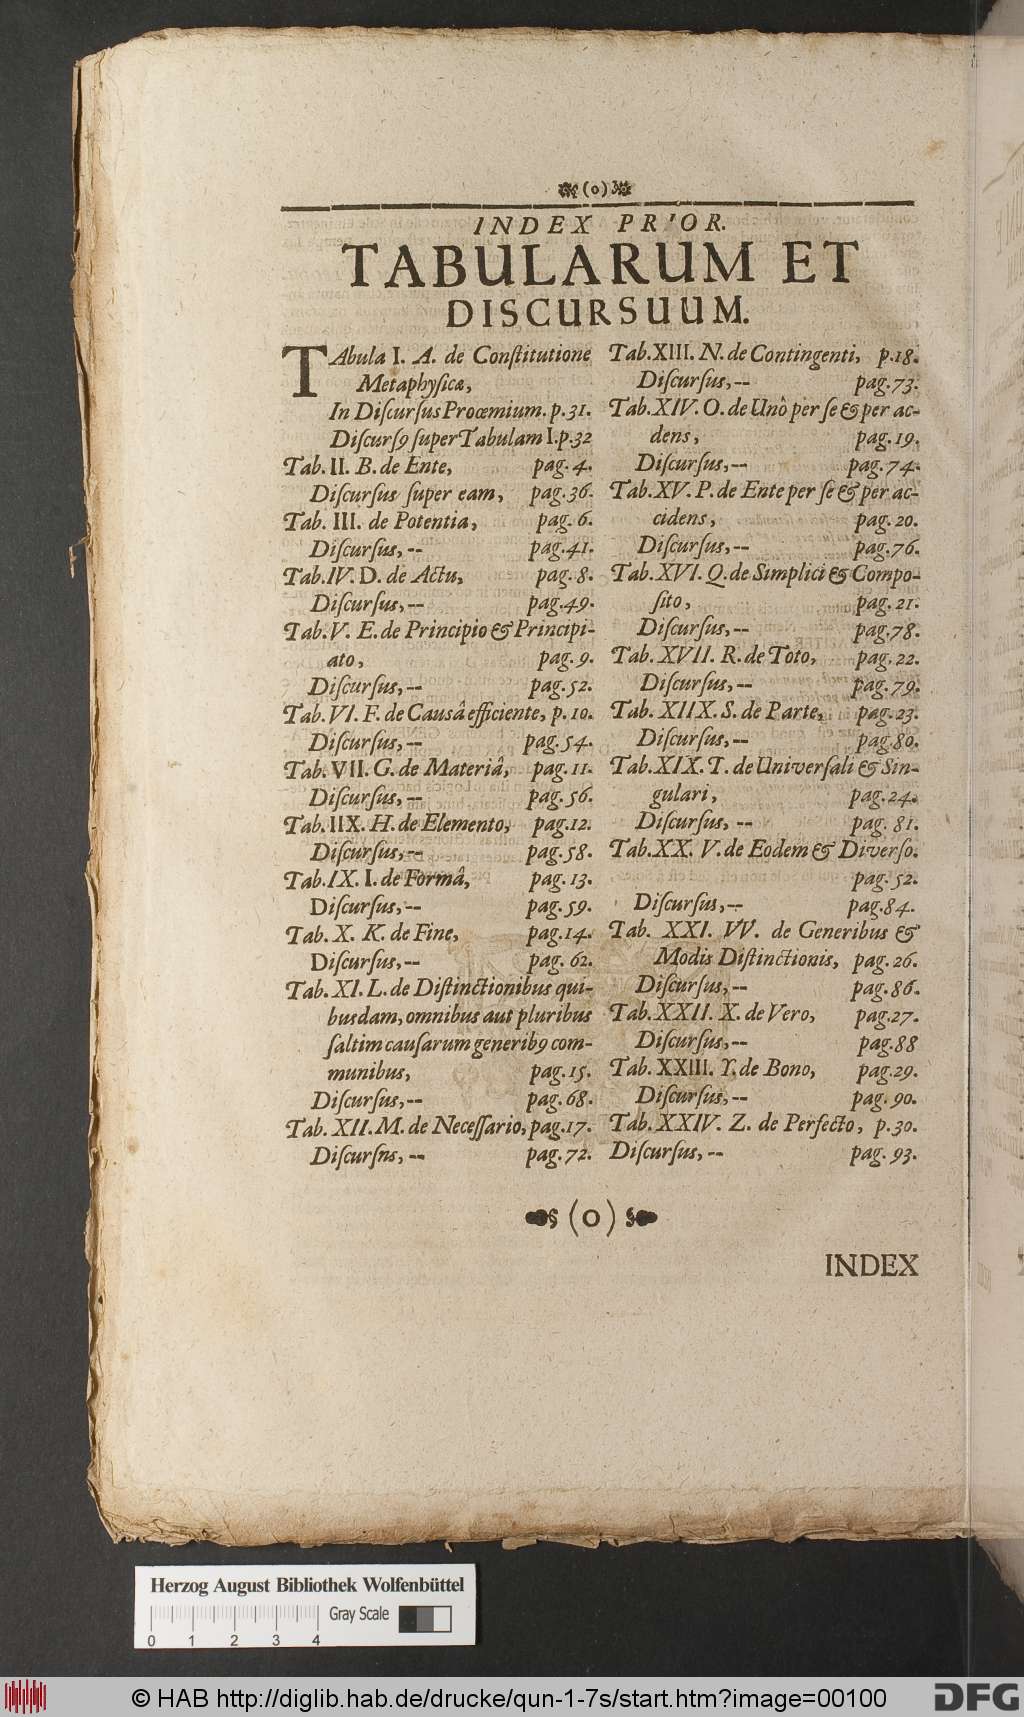 (o)
INDEX PRIOR.
TABULARUM ET
DISCURSUUM.
TAbula I. A. de Conſtitutione
Metaphyſicæ,
In Diſcurſus Proœmium. p.31.
Diſcurſ9 ſuper Tabulam I.p.32
Tab. II. B. de Ente, pag. 4.
Diſcurſus ſuper eam, pag.36.
Tab. III. de Potentia, pag. 6.
Diſcurſus,-- pag.41.
Tab.IV. D. de Actu, pag. 8.
Diſcurſus,-- pag.49.
Tab.V. E. de Principio & Principi-
ato, pag. 9.
Diſcurſus,-- pag.52.
Tab.VI. F. de Causâ efficiente, p.10.
Diſcurſus,-- pag.54.
Tab.VII. G. de Materiâ, pag.11.
Diſcurſus,-- pag.56.
Tab.IIX. H. de Elemento, pag.12.
Diſcurſus,-- pag.58.
Tab.IX. I. de Formâ, pag.13.
Diſcurſus,-- pag.59.
Tab. X. K. de Fine, pag.14.
Diſcurſus,-- pag. 62.
Tab. XI. L. de Diſtinctionibus qui-
busdam, omnibus aut pluribus
ſaltim cauſarum generib9 com-
munibus, pag.15.
Diſcurſus,-- pag.68.
Tab. XII. M. de Neceſſario, pag.17.
Diſcurſns,-- pag.72.
Tab.XIII. N. de Contingenti, p.18.
Diſcurſus,-- pag.73.
Tab.XIV. O. de Unô per ſe & per ac-
dens, pag.19.
Diſcurſus,-- pag.74.
Tab.XV. P. de Ente per ſe & per ac-
cidens, pag.20.
Diſcurſus,-- pag.76.
Tab.XVI. Q. de Simplici & Compo-
ſito, pag.21.
Diſcurſus,-- pag.78.
Tab. XVII. R. de Toto, pag.22.
Diſcurſus,-- pag.79.
Tab. XIIX. S. de Parte, pag.23.
Diſcurſus,-- pag.80.
Tab.XIX. T. de Univerſali & Sin-
gulari, pag.24.
Diſcurſus, -- pag. 81.
Tab.XX. V. de Eodem & Diverſo.
pag.52.
Diſcurſus,-- pag.84.
Tab. XXI. VV. de Generibus &
Modis Diſtinctionis, pag.26.
Diſcurſus,-- pag.86.
Tab.XXII. X. de Vero, pag.27.
Diſcurſus,-- pag.88
Tab. XXIII. Y. de Bono, pag.29.
Diſcurſus,-- pag.90.
Tab. XXIV. Z. de Perfecto, p.30.
Diſcurſus,-- pag. 93.
(0)
INDEX
Herzog August Bibliothek Wolfenbüttel
Gray Scale
0 1 2 3 4
© HAB http://diglib.hab.de/drucke/qun-1-7s/start.htm?image=00100
DFG